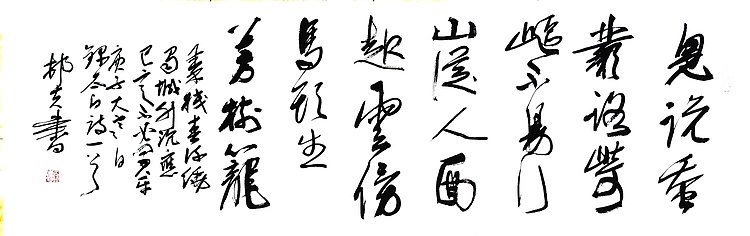 見說蚕
叢路崎
嶇不易行
山從人面
起雲傍
馬頭生
芳樹籠
秦棧春流繞
蜀城升沉應
已定不必問君平
庚子大日
錄白詩一首
書